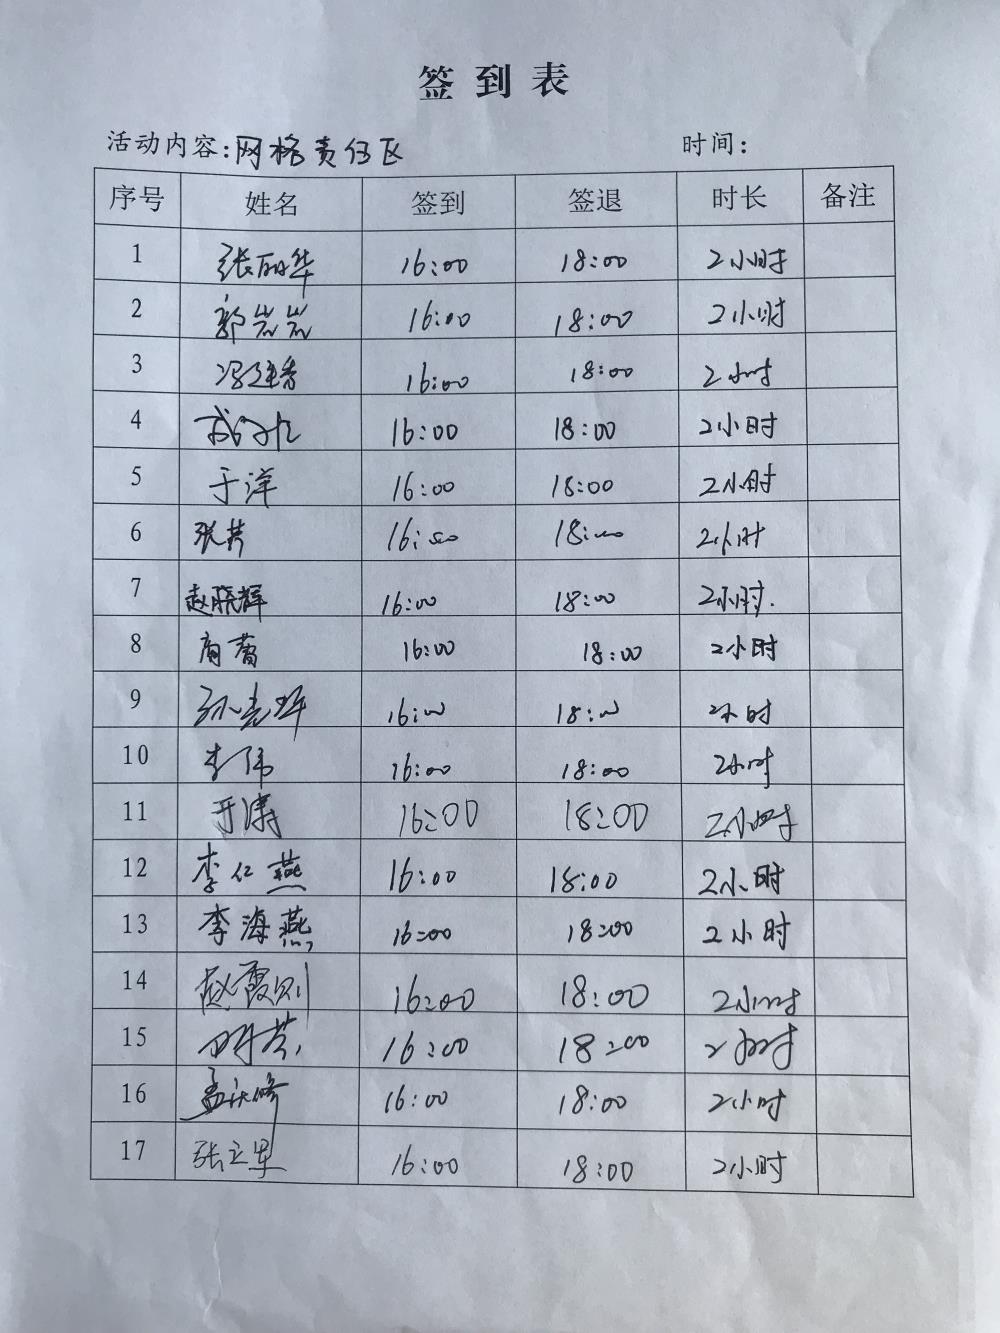 签到表
活动内容:网格责任区 时间:
序号 姓名 签到 签退 时长 备注
1 张丽华 16:00 18:00 2小时
2 郭岩岩 16:00 18:00 2小时
3 冯建香 16:00 18:00 2小时
4 16:00 18:00 2小时
5 于洋 16:00 18:00 2小时
6 张芳 16:00 18:00 2小时
7 赵晓辉 16:00 18:00 2小时.
8 16:00 18:00 2小时
9 16:00 18:00 2小时
10 李伟 16:00 18:00 2小时
11 于涛 16:00 18:00 2小时
12 李仁燕 16:00 18:00 2小时
13 李海燕 16:00 18:00 2小时
14 16:00 18:00 2小时
15 16:00 18:00 2小时
16 孟庆修 16:00 18:00 2小时
17 张立军 16:00 18:00 2小时